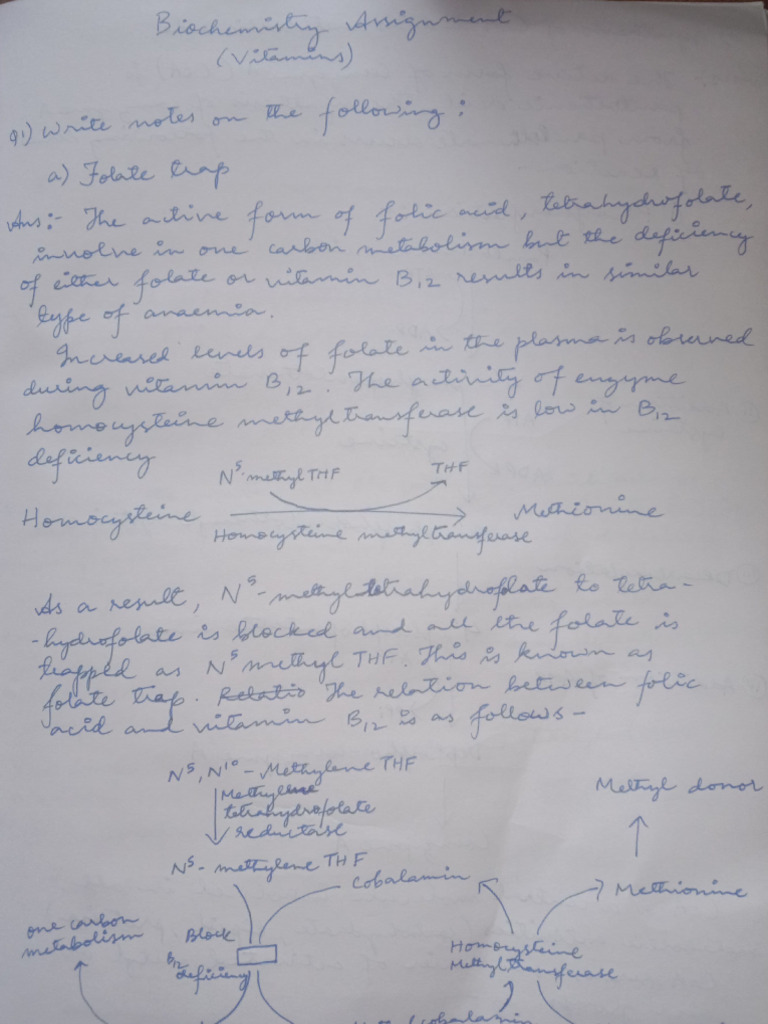 Biochemistry Assignment
(Vitamins)
Q1) Write notes on the following :
a) Folate trap
Ans :- The active form of folic acid, tetrahydrofolate,
involve in one carbon metabolism but the deficiency
of either folate or vitamin B12 results in similar
type of anaemia.
Increased levels of folate in the plasma is observed
during vitamin B12. The activity of enzyme
homocysteine methyltransferase is low in B12
deficiency
N5-methyl THF
THF
Homocysteine
Methionine
Homocysteine methyltransferase
As a result, N5-methyltetrahydrofolate to tetra-
-hydrofolate is blocked and all the folate is
trapped as N5 methyl THF. This is known as
folate trap. Relatio The relation between folic
acid and vitamin B12 is as follows -
N5, N10 - Methylene THF
Methylene
tetrahydrofolate
reductase
Methyl donor
N5- methylene THF
Cobalamin
Methionine
one carbon
metabolism
Block
B12
deficiency
Homocysteine
Methyltransferase